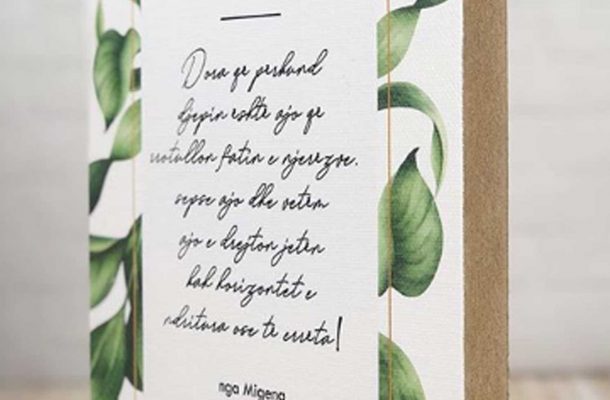 Dora qe perkund
djepin eshte ajo qe
rrotullon fatin e njerezve.
sepse ajo dhe vetem
ajo e drejton jeten
kah horizontet e
ndritura ose te erreta!
nga Migena